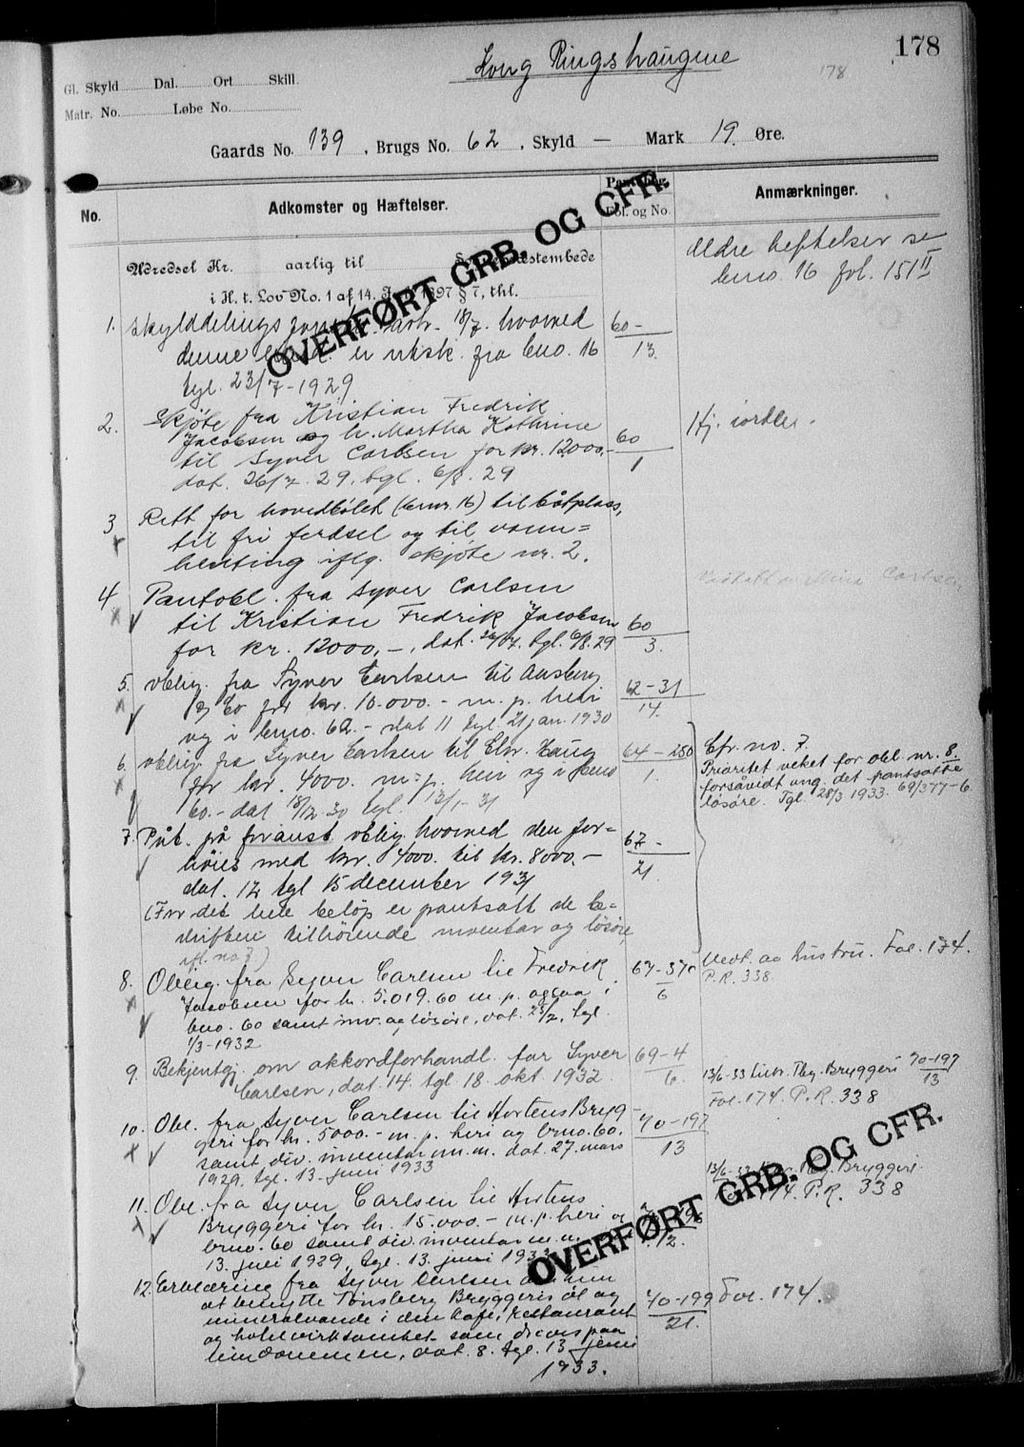 178
Gl. Skyld Dal. Ort Skill.
Hong Ringshaugene
178
Matr. No. Løbe No.
Gaards No. 139, Brugs No. 62, Skyld — Mark 19 Øre.
No. Adkomster og Hæftelser. Fol. og No. Anmærkninger.
OVERFØRT GRB. OG CFR.
Udredsel Kr. aarlig til
i H. t. Lov No. 1 af 14. 1897 § 7, thl.
Ældre heftelser se
bno. 16 fol. 151 II
1. Skylddelings 18/7. hvorved 60 –
denne er utsk. fra bno. 16 13.
tgl. 23/7 – 1929
2. Skjøte fra Kristian Fredrik Hj. iordbr.
Jacobsen og h. Martha Kathrine 60
til Syver Carlsen for kr. 12000.– 1
dat. 26/7. 29. tgl. 6/8. 29
3 Rett for hovedbølet (bnr. 16) til båtplass,
til fri ferdsel og til vann=
henting iflg. skjøte nr. 2.
4 Pantobl. fra Syver Carlsen
til Kristian Fredrik Jacobsen 60
for kr. 12000,–, dat. 26/7. tgl. 6/8. 29 3.
5. oblig. fra Syver Carlsen til Aasberg 62 – 31
& Co for kr. 10.000.– m. p. heri 14.
og i bno. 62.– dat 11 tgl. 21 jan. 1930
6. oblig. fra Syver Carlsen til Elv. Haug 64 – 250
for kr. 4000. m=p. heri og i bno 1.
60.– dat 18/12 30 tgl. 13/1 – 31
Cfr. no. 7.
Prioritet veket for obl. nr. 8.
forsåvidt ang. det pantsatte
løsøre. Tgl. 28/3 1933. 69/377 – 6
7. Påt. på foranst. oblig. hvorved den for- 67 –
høies med kr. 4000. til kr. 8000.– 21.
dat. 12 tgl 15 december 1931
(For det hele beløp er pantsatt de be=
driften tilhørende inventar og løsøre
ifl. no 7)
8. Oblig. fra Syver Carlsen til Fredrik 67 – 370
Jacobsen for kr. 5.019.60 m. p. ogsaa i 6
bno. 60 samt inv. og løsøre, dat. 25/2, tgl.
1/3 – 1932
Vedt. aa hustru. Fol. 174.
P.R. 338
9. Bekjentgj. om akkordforhandl. for Syver 69 – 4
Carlsen, dat. 14. tgl 18. okt. 1932 6.
10. Obl. fra Syver Carlsen til Hortens Bryg- 70 – 197
geri for kr. 5000.– m. p. heri og bno. 60. 13
samt div. inventar m. m. dat. 27. mars
1929. tgl. 13. juni 1933
13/6 – 33 Bryggeri 70 – 197
13
Fol. 174. P.R. 338
11. Obl. fra Syver Carlsen til Hortens
Bryggeri for kr. 15.000.– m. p. heri og
bno. 60 samt div. inventar m. m. 12.
13. juli 1929, tgl. 13. juni 1933
13/6 – 33 Bryggeri
174. P.R. 338
OVERFØRT GRB. OG CFR.
12. Erklæring fra Syver Carlsen
at benytte Tønsberg Bryggeris øl og 70 – 199 Fol. 174.
mineralvande i den Kafe, restaurant 21.
og hotelvirksomhet som drives paa
eiendommen, dat. 8. tgl. 13 juni
1933.